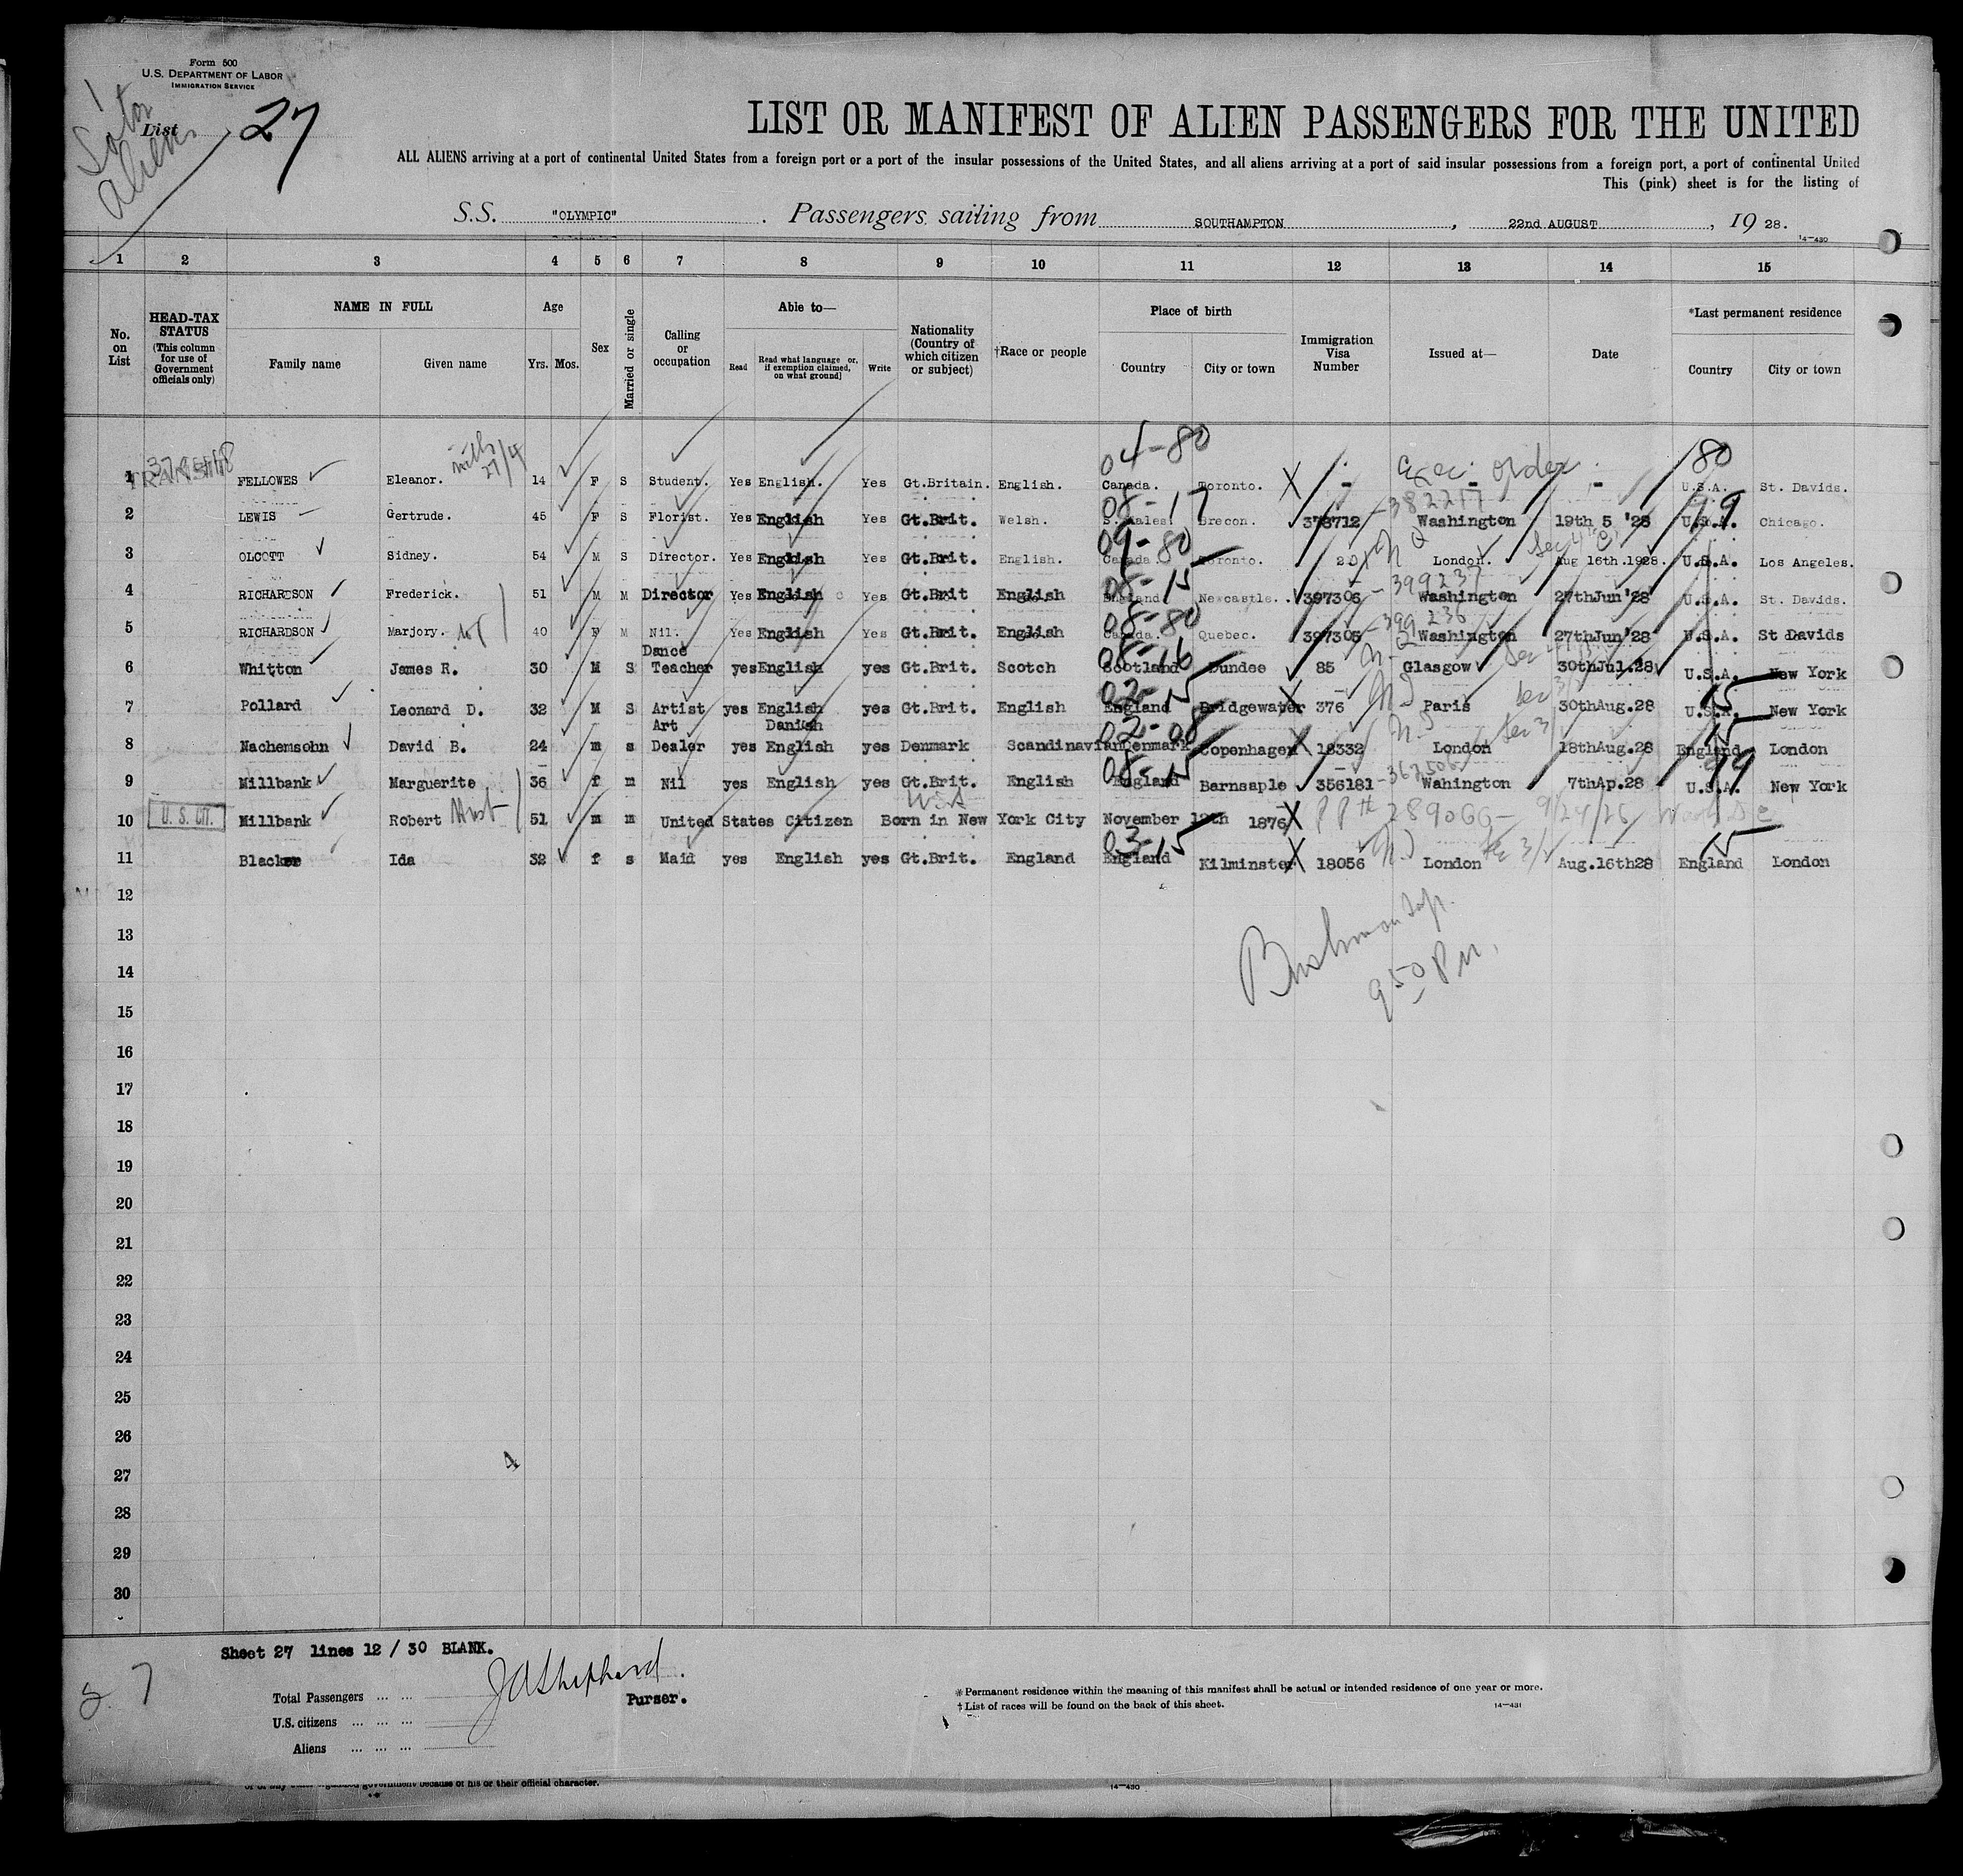 Form 500
U.S. DEPARTMENT OF LABOR
IMMIGRATION SERVICE
List 27
LIST OR MANIFEST OF ALIEN PASSENGERS FOR THE UNITED
ALL ALIENS arriving at a port of continental United States from a foreign port or a port of the insular possessions of the United States, and all aliens arriving at a port of said insular possessions from a foreign port, a port of continental United
This (pink) sheet is for the listing of
S.S. "OLYMPIC". Passengers sailing from SOUTHAMPTON, 22nd AUGUST, 19 28.
14—430
1 2 3 4 5 6 7 8 9 10 11 12 13 14 15
No. on List
HEAD-TAX STATUS (This column for use of Government officials only)
NAME IN FULL Family name Given name
Age Yrs. Mos.
Sex
Married or single
Calling or occupation
Able to— Read Read what language [or, if exemption claimed, on what ground] Write
Nationality (Country of which citizen or subject)
†Race or people
Place of birth Country City or town
Immigration Visa Number
Issued at—
Date
*Last permanent residence Country City or town
04-80 Exec. Order 80
1 TRANSIT FELLOWES Eleanor. 27/4 14 F S Student. Yes English. Yes Gt.Britain. English. Canada. Toronto. - - - U.S.A. St. Davids.
08-17 -382217 99
2 LEWIS Gertrude. 45 F S Florist. Yes English Yes Gt.Brit. Welsh. S. Wales. Brecon. 378712 Washington 19th 5 '28 U.S.A. Chicago.
09-80
3 OLCOTT Sidney. 54 M S Director. Yes English Yes Gt.Brit. English. Canada. Toronto. London. Aug 16th.1928. U.S.A. Los Angeles.
08-15 -399237
4 RICHARDSON Frederick. 51 M M Director Yes English Yes Gt.Brit English England Newcastle. 397306 Washington 27thJun'28 U.S.A. St. Davids.
08-80 -399236
5 RICHARDSON Marjory. 40 F M Nil. Yes English Yes Gt.Brit. English Canada. Quebec. 397305 Washington 27thJun'28 U.S.A. St Davids
08-16
6 Whitton James R. 30 M S Dance Teacher yes English yes Gt.Brit. Scotch Scotland Dundee 85 Glasgow 30thJul.28 U.S.A. New York
02-15 15
7 Pollard Leonard D. 32 M S Artist yes English yes Gt.Brit. English England Bridgewater 376 Paris 30thAug.28 U.S.A. New York
02-08 15
8 Nachemsohn David B. 24 m s Art Dealer yes Danish English yes Denmark Scandinavian Denmark Copenhagen 18332 London 18thAug.28 England London
08-15 -362506 99
9 Millbank Marguerite 36 f m Nil yes English yes Gt.Brit. English England Barnsaple 356181 Wahington 7thAp.28 U.S.A. New York
USA
10 U. S. CIT. Millbank Robert 51 m m United States Citizen Born in New York City November 12th 1876 289066 - 9/24/26 Wash D C
03-15 15
11 Blacker Ida 32 f s Maid yes English yes Gt.Brit. England England Kilminster 18056 London Aug.16th28 England London
12
13
9 50 P M.
14
15
16
17
18
19
20
21
22
23
24
25
26
4
27
28
29
30
Sheet 27 lines 12 / 30 BLANK.
JA Shepherd.
Purser.
Total Passengers ... ...
U.S. citizens ... ... ...
Aliens ... ... ...
* Permanent residence within the meaning of this manifest shall be actual or intended residence of one year or more.
† List of races will be found on the back of this sheet.
14—431
government because of his or their official character.
14—430